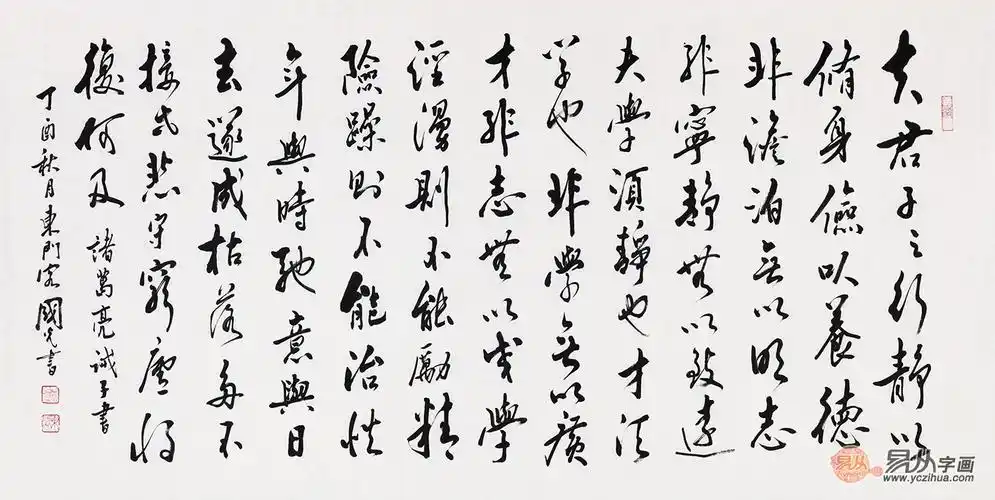 夫君子之行静以
脩身儉以養德
非澹泊无以明志
非寧静無以致遠
夫學須静也才須
学也非學无以廣
才非志無以成學
淫漫則不能勵精
險躁則不能治性
年與時馳意與日
去遂成枯落多不
接世悲守窮廬將
復何及 諸葛亮誡子書
丁酉秋月東門客國光書
易从
易从字画
www.yczihua.com